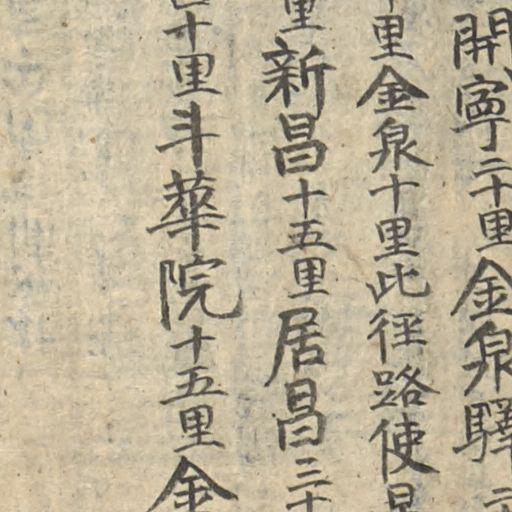 開寧二十里金泉驛二
里金泉十里此徑路使
里新昌十五里居昌三十
十里斗華院十五里金